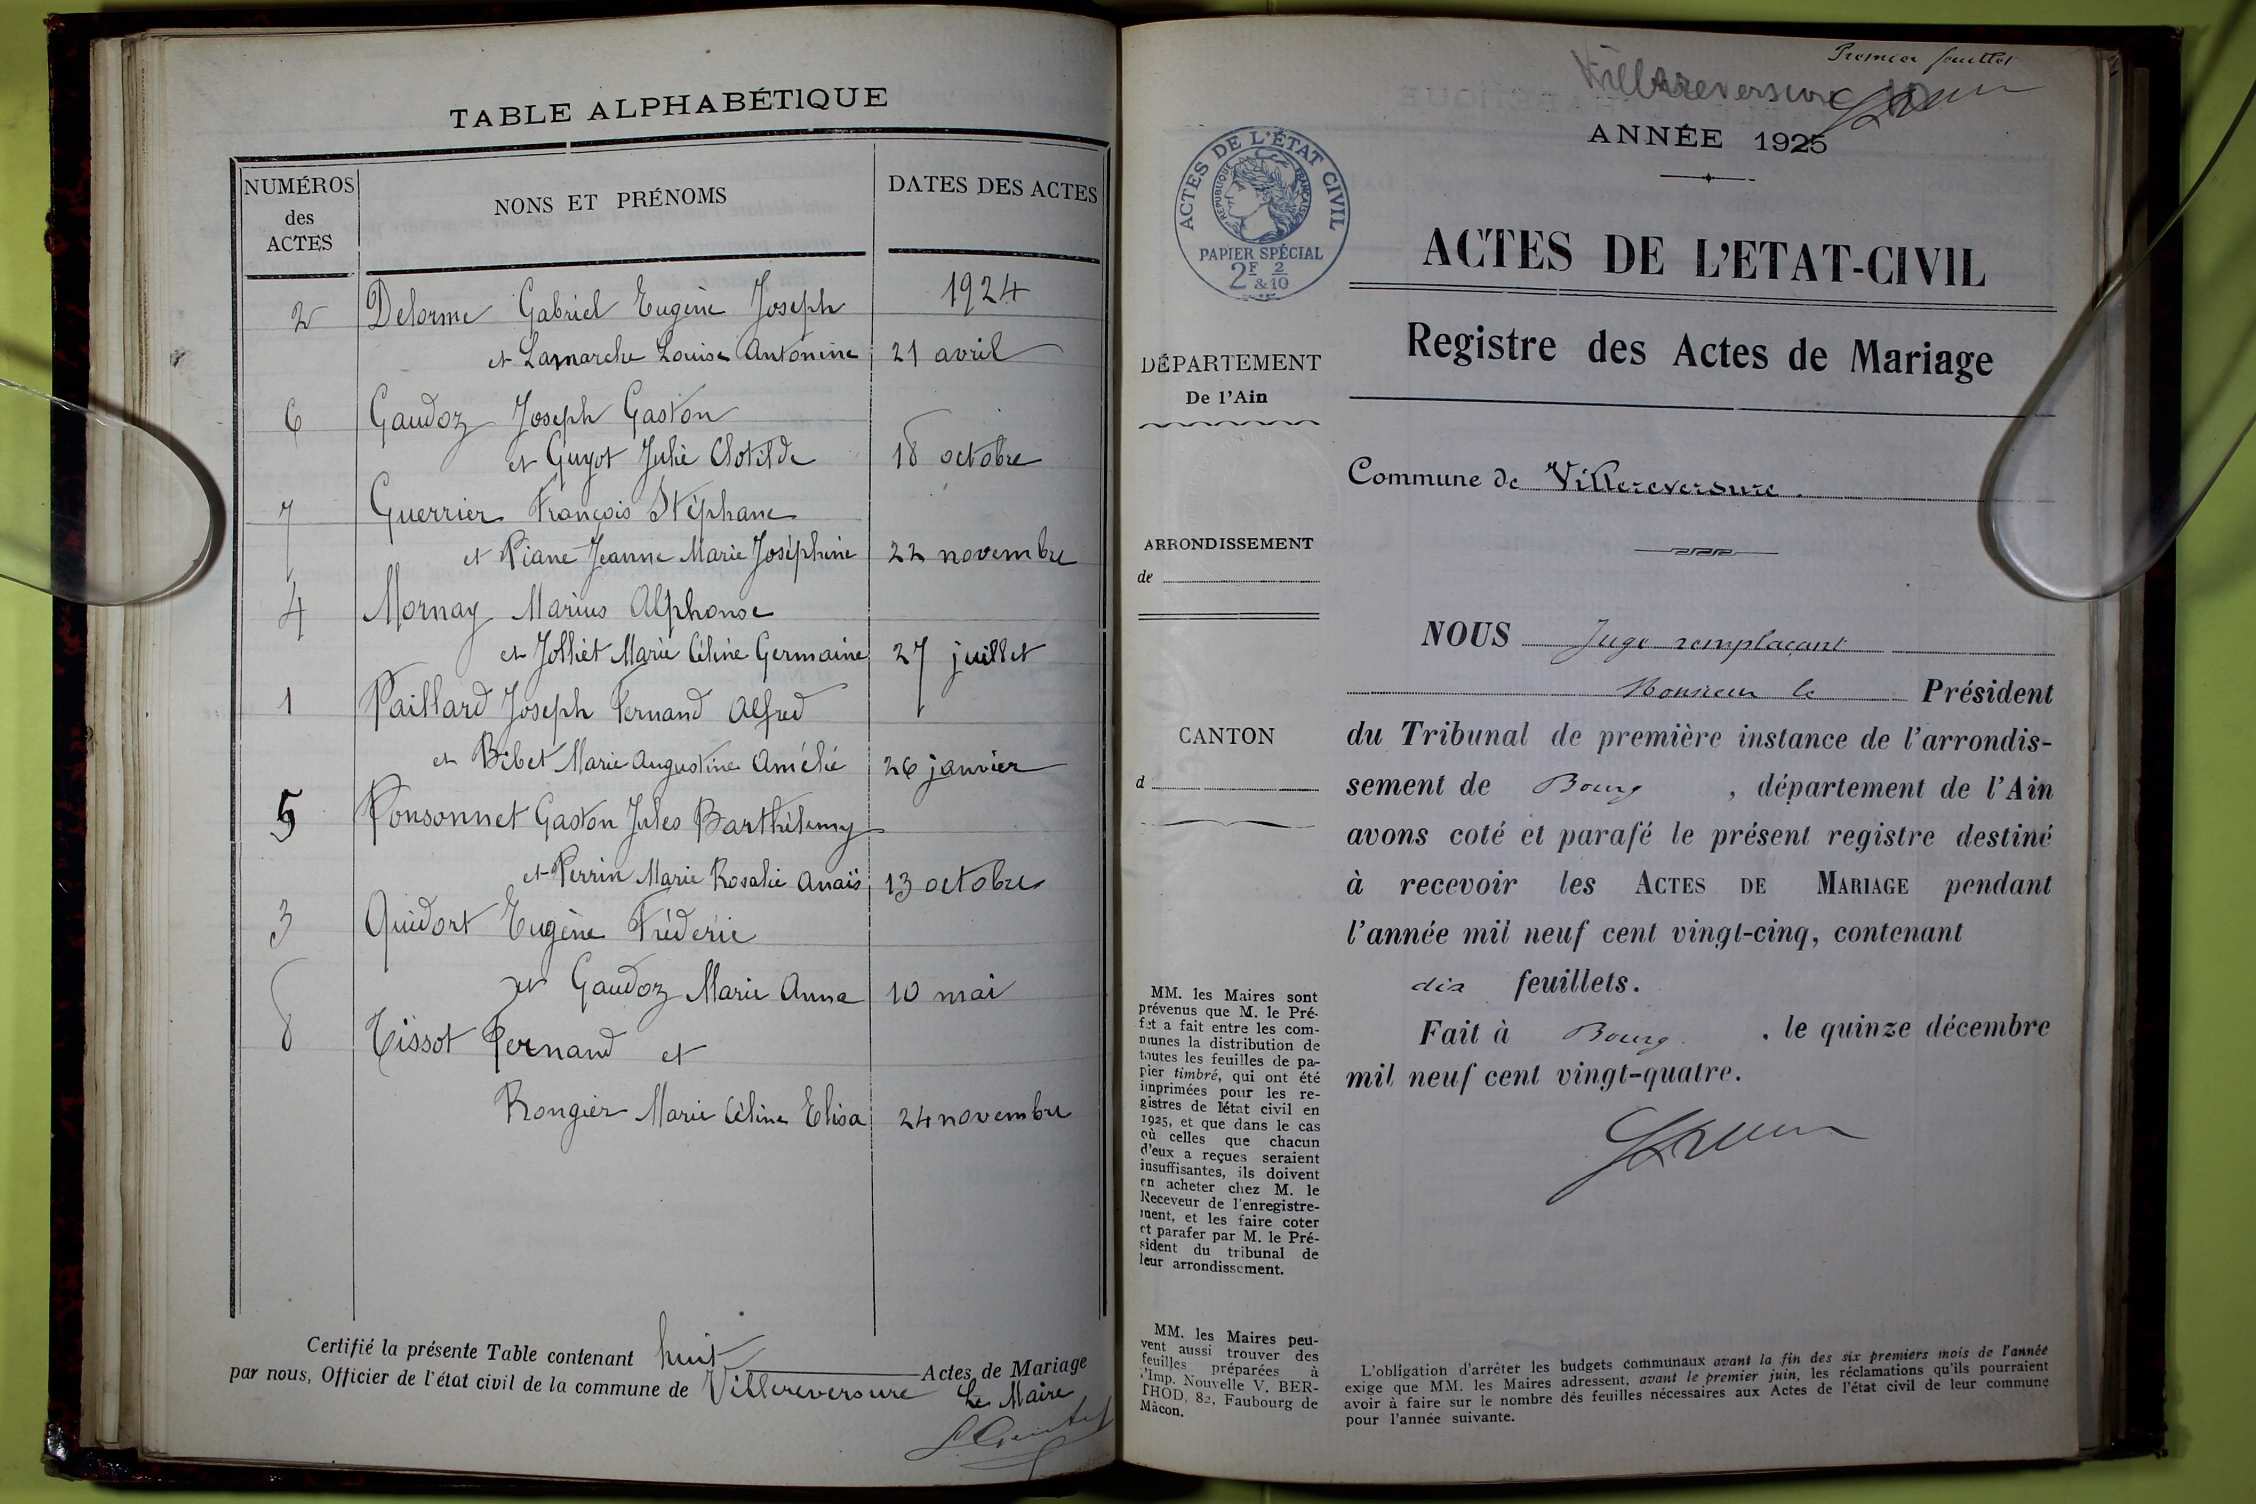 TABLE ALPHABÉTIQUE
NUMÉROS
des
ACTES
NONS ET PRÉNOMS
DATES DES ACTES
1924
2 Delorme Gabriel Eugène Joseph
et Lamarche Louise Antonine 21 avril
6 Gaudoz Joseph Gaston
et Guyot Julie Clotilde 18 octobre
7 Guerrier François Stéphane
et Piane Jeanne Marie Joséphine 22 novembre
4 Mornay Marius Alphonse
et Jolliet Marie Céline Germaine 27 juillet
1 Paillard Joseph Fernand Alfred
et Bibet Marie Augustine Amélie 26 janvier
5 Ponsonnet Gaston Jules Barthélemy
et Perrin Marie Rosalie Anaïs 13 octobre
3 Quidort Eugène Fréderic
et Gaudoz Marie Anna 10 mai
8 Tissot Fernand et
Rongier Marie Céline Elisa 24 novembre
Certifié la présente Table contenant huit Actes de Mariage
par nous, Officier de l'état civil de la commune de Villereversure
Le Maire
Premier feuillet
Villereversure 10
ANNÉE 1925
ACTES DE L'ÉTAT CIVIL
RÉPUBLIQUE FRANÇAISE
PAPIER SPÉCIAL
2F & 2/10
ACTES DE L'ETAT-CIVIL
Registre des Actes de Mariage
DÉPARTEMENT
De l'Ain
Commune de Villereversure.
ARRONDISSEMENT
de
CANTON
d
NOUS Juge remplaçant
Monsieur le Président
du Tribunal de première instance de l'arrondis-
sement de Bourg, département de l'Ain
avons coté et parafé le présent registre destiné
à recevoir les ACTES DE MARIAGE pendant
l'année mil neuf cent vingt-cinq, contenant
dix feuillets.
Fait à Bourg, le quinze décembre
mil neuf cent vingt-quatre.
MM. les Maires sont
prévenus que M. le Pré-
fet a fait entre les com-
munes la distribution de
toutes les feuilles de pa-
pier timbré, qui ont été
imprimées pour les re-
gistres de l'état civil en
1925, et que dans le cas
où celles que chacun
d'eux a reçues seraient
insuffisantes, ils doivent
en acheter chez M. le
Receveur de l'enregistre-
ment, et les faire coter
et parafer par M. le Pré-
sident du tribunal de
leur arrondissement.
MM. les Maires peu-
vent aussi trouver des
feuilles préparées à
l'Imp. Nouvelle V. BER-
THOD, 82, Faubourg de
Mâcon.
L'obligation d'arrêter les budgets communaux avant la fin des six premiers mois de l'année
exige que MM. les Maires adressent, avant le premier juin, les réclamations qu'ils pourraient
avoir à faire sur le nombre des feuilles nécessaires aux Actes de l'état civil de leur commune
pour l'année suivante.